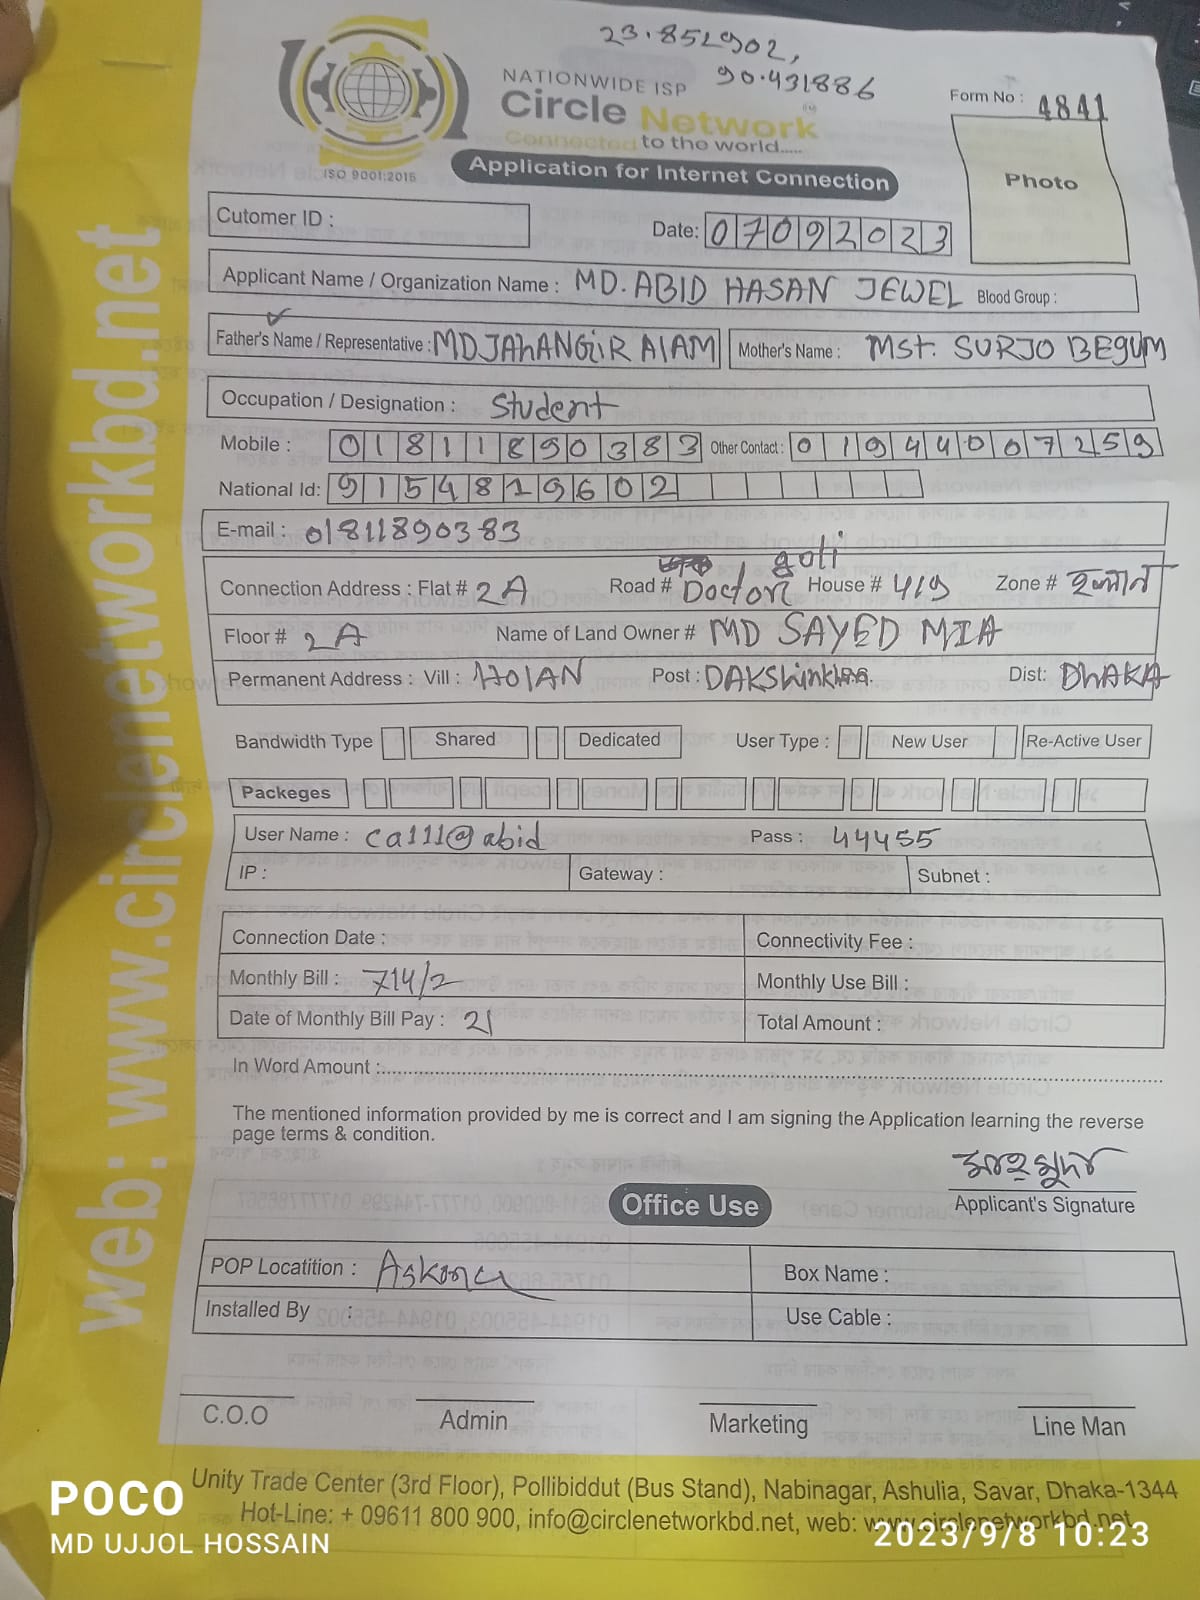 23.852902,
90.431886
NATIONWIDE ISP
Circle Network
Connected to the world.....
ISO 9001:2015
Application for Internet Connection
Form No : 4841
Photo
Cutomer ID :
Date: 07092023
Applicant Name / Organization Name : MD. ABID HASAN JEWEL Blood Group :
Father's Name / Representative : MD JAhANGiR AlAM Mother's Name : MSt. SURJO BEgUM
Occupation / Designation : Student
Mobile : 01811890383 Other Contact : 01944007259
National Id: 9154819602
E-mail : 01811890383
Connection Address : Flat # 2A Road # Doctor goli House # 419 Zone #
Floor # 2A Name of Land Owner # MD SAYED MIA
Permanent Address : Vill : HOlAN Post : DAKShinkhan. Dist: DhAKA
Bandwidth Type Shared Dedicated User Type : New User Re-Active User
Packeges
User Name : ca111@abid Pass : 44455
IP : Gateway : Subnet :
Connection Date : Connectivity Fee :
Monthly Bill : 714/2 Monthly Use Bill :
Date of Monthly Bill Pay : 21 Total Amount :
In Word Amount :
The mentioned information provided by me is correct and I am signing the Application learning the reverse
page terms & condition.
Applicant's Signature
Office Use
POP Locatition : Askona Box Name :
Installed By : Use Cable :
C.O.O Admin Marketing Line Man
Unity Trade Center (3rd Floor), Pollibiddut (Bus Stand), Nabinagar, Ashulia, Savar, Dhaka-1344
Hot-Line: + 09611 800 900, info@circlenetworkbd.net, web: www.circlenetworkbd.net
web: www.circlenetworkbd.net
POCO
MD UJJOL HOSSAIN
2023/9/8 10:23